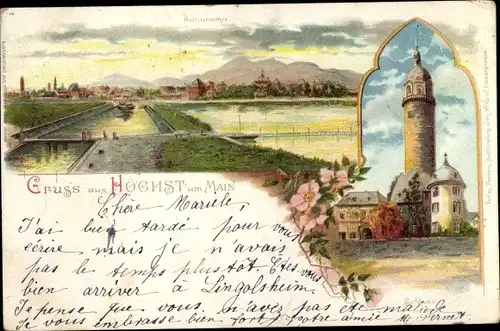 Panorama
Gruss aus Höchst am Main
Chère Mariele
J'ai bien tardé pour vous
écrire mais je n'avais
pas le temps plus tôt. Etes vous
bien arriver à Lingolsheim
Je pense que vous n'avez pas été malade
Je vous embrasse bien fort